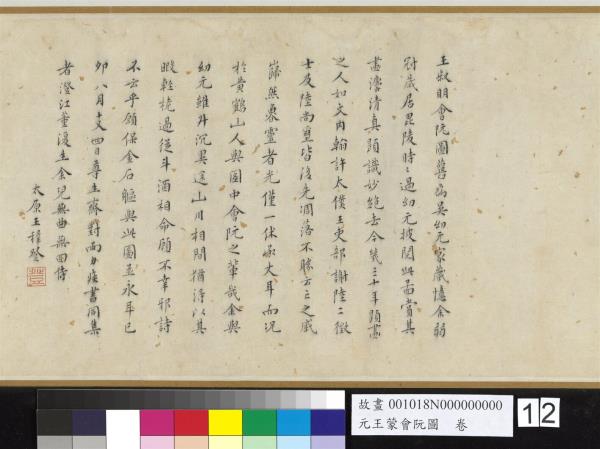 王叔明會阮圖舊為吳幼元家藏憶余弱
冠歲居毘陵時時過幼元披閱此圖賞其
畫灋清真題識妙絕去今幾三十年題畫
之人如文內翰許太僕王吏部謝陸二徵
士及陸尚寶皆後先凋落不勝存亡之感
巋然象靈者光僅一休承丈耳而況
於黃鶴山人與圖中會阮之輩哉余與
幼元雖升沉異途山川相間猶得以其
暇輕橈過從斗酒相命顧不幸邪詩
不云乎願保金石軀與此圖並永年己
卯八月十又四日尊生齋對雨力疾書同集
者澄江童復生余兒無曲無回侍
太原王穉登
故畫 001018N000000000
元王蒙會阮圖 卷
12